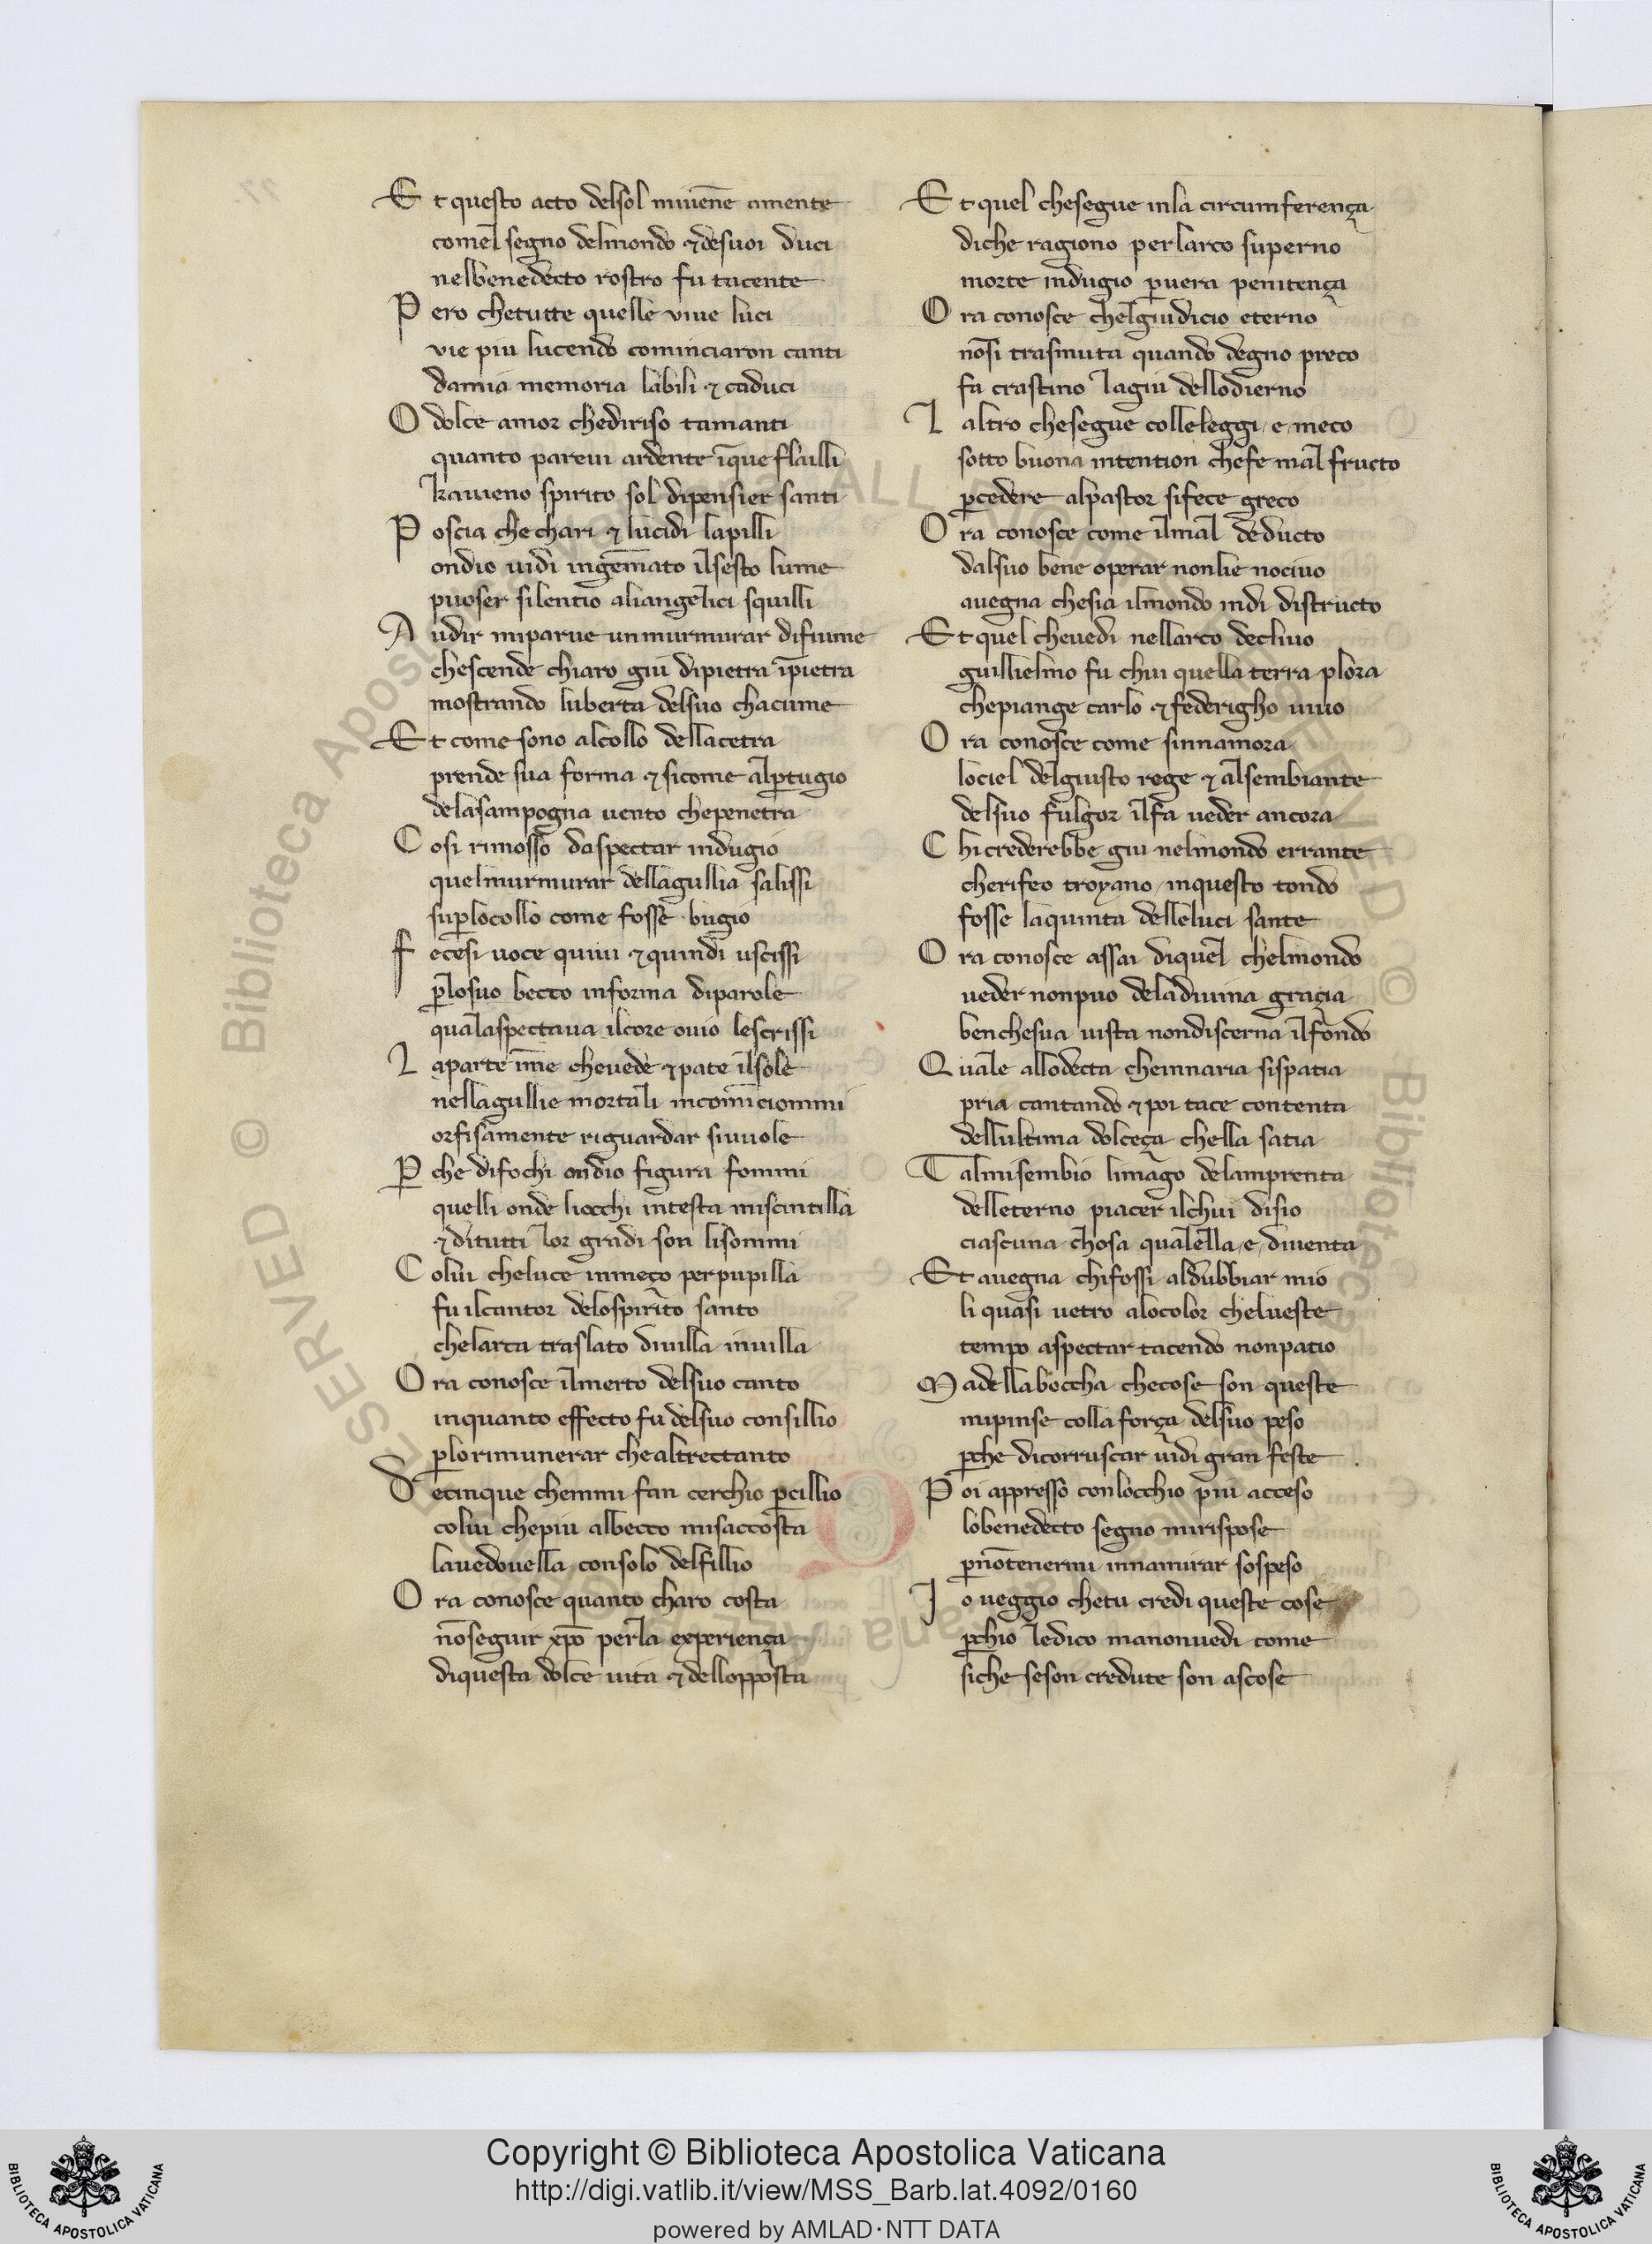 Et questo acto delsol miuenne amente
comel segno delmondo ⁊desuoi duci
nelbenedecto rostro fu tacente
Pero chetutte quelle uiue luci
uie piu lucendo cominciaron canti
damia memoria labili ⁊ caduci
O dolce amor chediriso tamanti
quanto pareui ardente īque flailli
kaueno spirito sol dipensier santi
Poscia che chari ⁊ lucidi lapilli
ondio uidi ingēmato ilsesto lume
puoser silentio aliangelici squilli
Audir miparue unmurmurar difiume
chescende chiaro giu dipietra īpietra
mostrando luberta delsuo chacume
Et come sono alcollo dellacetra
prende sua forma ⁊ sicome alp̄tugio
delasampogna uento chepenetra
Cosi rimosso daspectar indugio
quelmurmurar dellagullia salissi
sup̄locollo come fosse bugio
Fecesi uoce quiui ⁊quindi uscissi
p̄losuo becco informa diparole
qualaspectaua ilcore ouio lescrissi
Laparte īme cheuede ⁊pate ilsole
nellagullie mortali incomīciommi
orfisamente riguardar siuuole
P̄che difochi ondio figura fommi
quelli onde liocchi intesta miscintilla
⁊ditutti lor gradi son lisommi
Colui cheluce inmeço perpupilla
fu ilcantor delospirito santo
chelarca traslato diuilla inuilla
Ora conosce ilmerto delsuo canto
inquanto effecto fu delsuo consillio
p̄lorimunerar chealtrectanto
Decinque chemmi fan cerchio p̄cillio
colui chepiu albecco misaccosta
lauedouella consolo delfillio
Ora conosce quanto charo costa
nōseguir xp̄o perla experiença
diquesta dolce uita ⁊dellopposta
Et quel chesegue inla circumferença
diche ragiono perlarco superno
morte indugio p̄uera penitença
Ora conosce chelgiudicio eterno
nōsi trasmuta quando degno preco
fa crastino lagiu dellodierno
Laltro chesegue colleleggi e meco
sotto buona intention chefe mal fructo
p̄cedere alpastor sifece greco
Ora conosce come ilmal deducto
dalsuo bene operar nonlie nociuo
auegna chesia ilmondo indi distructo
Et quel cheuedi nellarco decliuo
guillielmo fu chui quella terra plora
chepiange carlo ⁊ federigho uiuo
Ora conosce come sinnamora
lociel delgiusto rege ⁊ alsembiante
delsuo fulgor ilfa ueder ancora
Chicrederebbe giu nelmondo errante
cherifeo troyano inquesto tondo
fosse laquinta delleluci sante
Ora conosce assai diquel chelmondo
ueder nonpuo deladiuina graçia
benchesua uista nondiscerna ilfondo
Quale allodecta cheinnaria sispatia
pria cantando ⁊poi tace contenta
dellultima dolceça chella satia
Talmisembio limago delamprenta
delleterno piacer ilchui disio
ciascuna chosa qualella e diuenta
Et auegna chifossi aldubbiar mio
li quasi uetro alocolor chelueste
tempo aspectar tacendo nonpatio
Madellaboccha checose son queste
mipinse colla força delsuo peso
p̄che dicorruscar uidi gran feste
Poi appresso conlocchio piu acceso
lobenedecto segno mirispose
p̄nōtenermi innamirar sospeso
Io ueggio chetu credi queste cose
p̄chio ledico manonuedi come
siche seson credute son ascose
Copyright © Biblioteca Apostolica Vaticana
http://digi.vatlib.it/view/MSS_Barb.lat.4092/0160
powered by AMLAD·NTT DATA